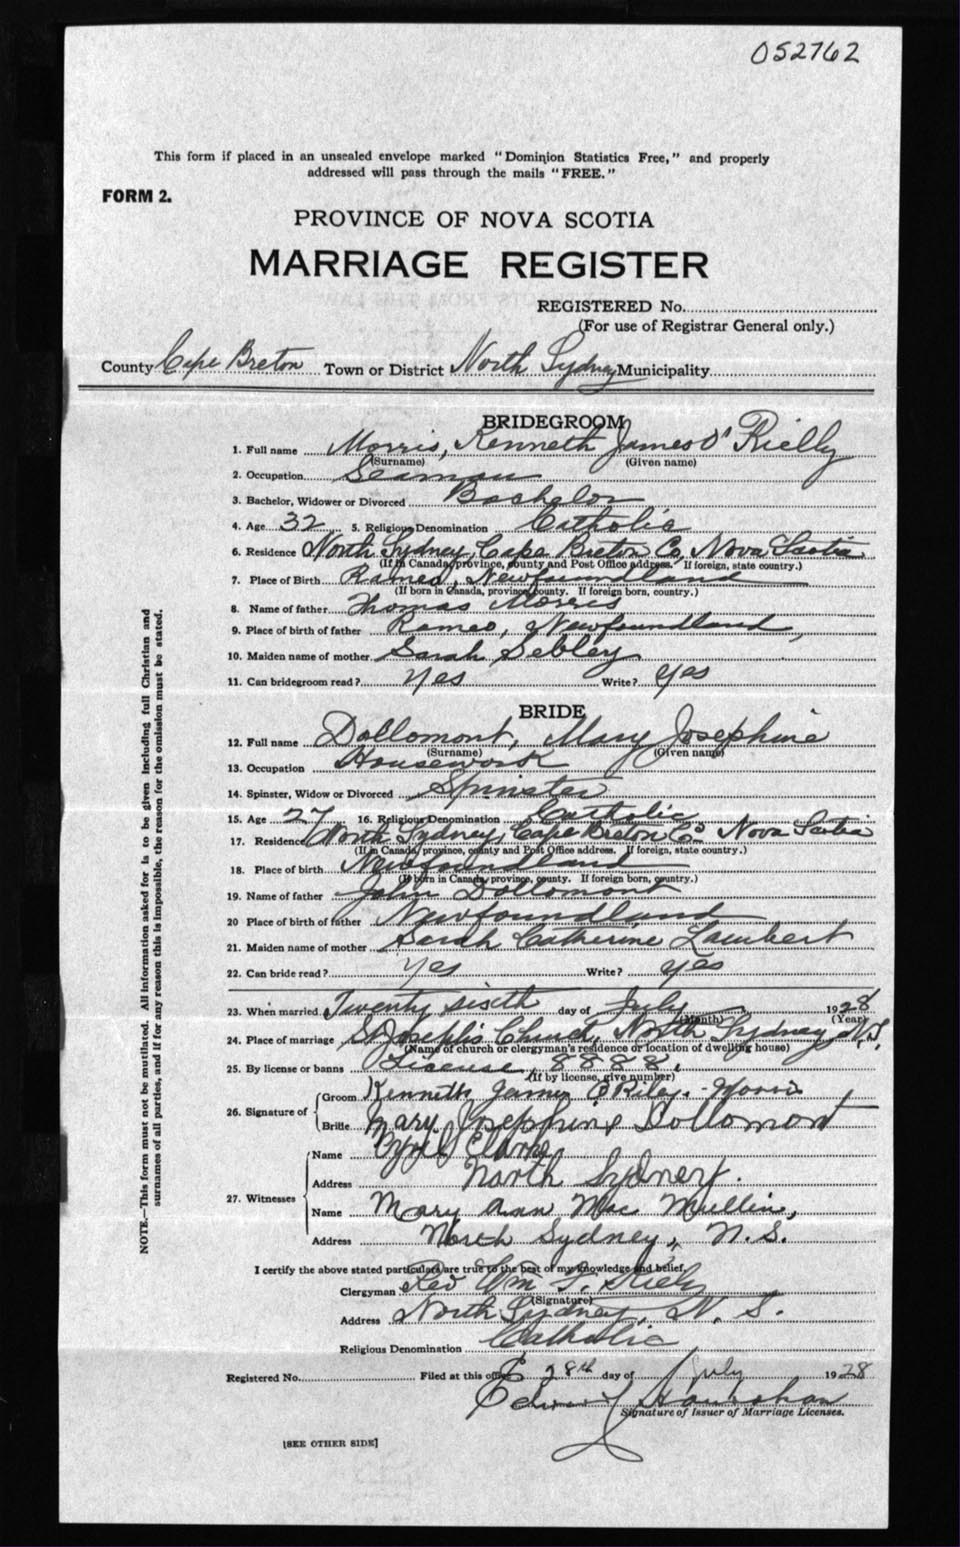 052762
This form if placed in an unsealed envelope marked "Dominion Statistics Free," and properly
addressed will pass through the mails "FREE."
FORM 2.
PROVINCE OF NOVA SCOTIA
MARRIAGE REGISTER
REGISTERED No.
(For use of Registrar General only.)
County Cape Breton Town or District North Sydney Municipality
BRIDEGROOM
1. Full name Morris, Kenneth James O'Rielly
(Surname) (Given name)
2. Occupation Seaman
3. Bachelor, Widower or Divorced Bachelor
4. Age 32 5. Religious Denomination Catholic
6. Residence North Sydney, Cape Breton Co, Nova Scotia
(If in Canada, province, county and Post Office address. If foreign, state country.)
7. Place of Birth Rameo, Newfoundland
(If born in Canada, province, county. If foreign born, country.)
8. Name of father Thomas Morris
9. Place of birth of father Rameo, Newfoundland,
10. Maiden name of mother Sarah Sebley
11. Can bridegroom read? Yes Write? Yes
BRIDE
12. Full name Dollomont, Mary Josephine
(Surname) (Given name)
13. Occupation Housework
14. Spinster, Widow or Divorced Spinster
15. Age 27 16. Religious Denomination Catholic
17. Residence North Sydney, Cape Breton Co Nova Scotia
(If in Canada, province, county and Post Office address. If foreign, state country.)
18. Place of birth Newfoundland
(If born in Canada, province, county. If foreign born, country.)
19. Name of father John Dollomont
20 Place of birth of father Newfoundland
21. Maiden name of mother Sarah Catherine Lambert
22. Can bride read? Yes Write? Yes
23. When married Twenty sixth day of July 1928
(Month) (Year)
24. Place of marriage St Joseph's Church, North Sydney N.S.
(Name of church or clergyman's residence or location of dwelling house)
25. By license or banns License, 8888.
(If by license, give number)
26. Signature of Groom Kenneth James O Riley-Morris
Bride Mary Josephine Dollomont
27. Witnesses Name Cyril Clarke
Address North Sydney.
Name Mary Ann Mac Mullin,
Address North Sydney, N.S.
I certify the above stated particulars are true to the best of my knowledge and belief.
Clergyman Rev Wm F. Kiely
(Signature)
Address North Sydney, N.S.
Religious Denomination Catholic
Registered No. Filed at this office 28th day of July 1928
Signature of Issuer of Marriage Licenses.
[SEE OTHER SIDE]
NOTE.—This form must not be mutilated. All information asked for is to be given including full Christian and
surnames of all parties, and if for any reason this is impossible, the reason for the omission must be stated.